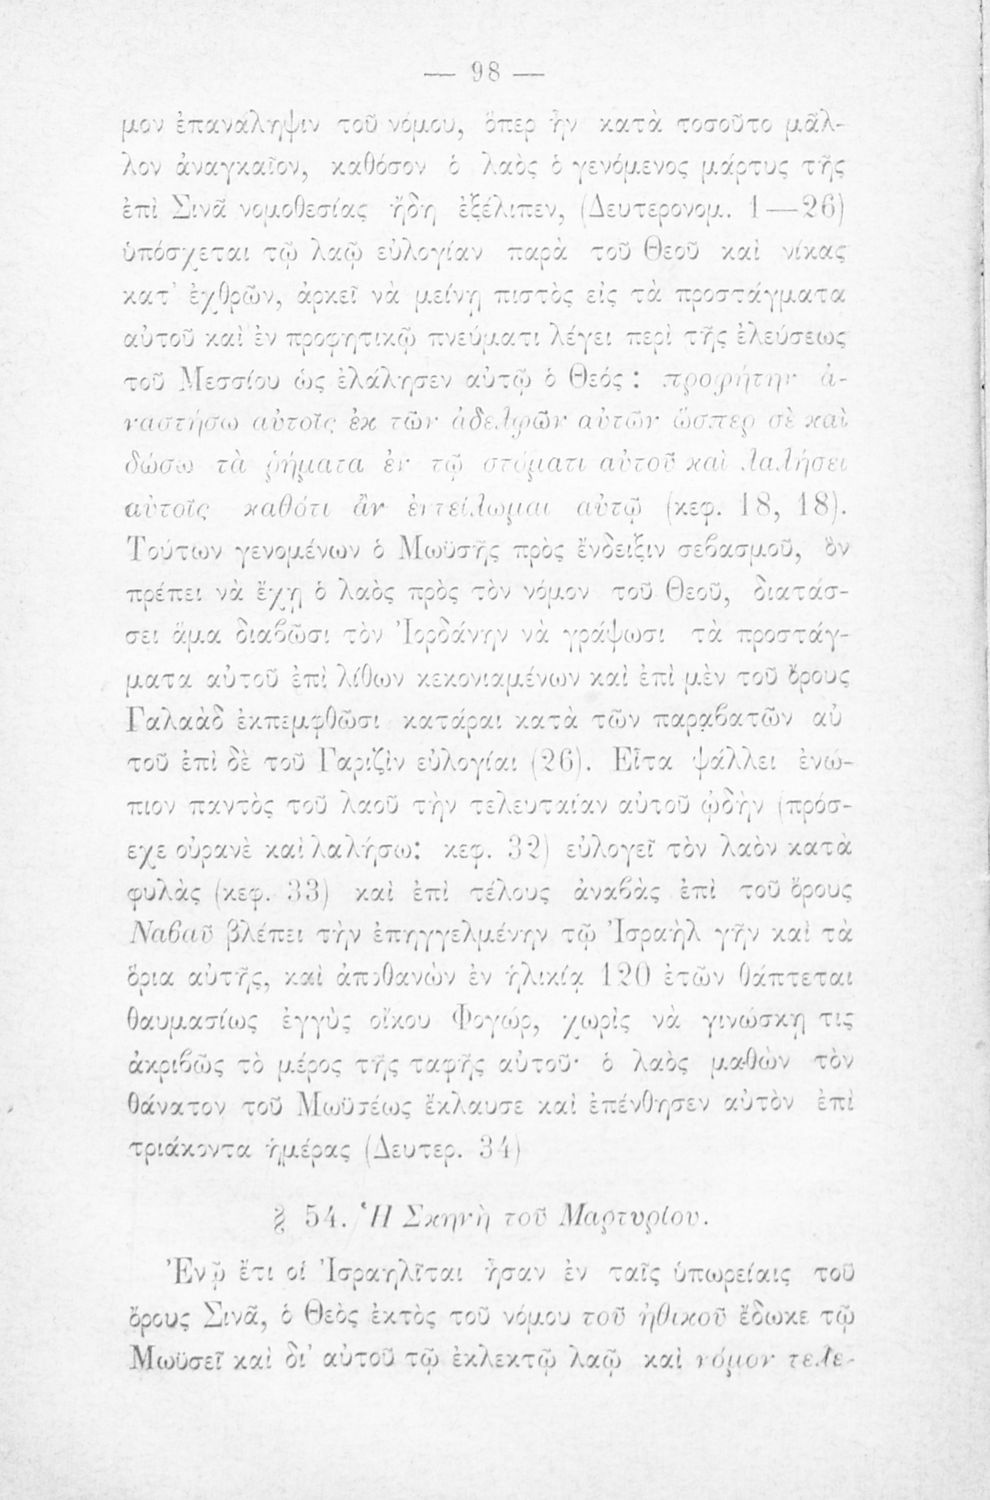 — 98 —
μον ἐπανάληψιν τοῦ νόμου, ὅπερ ἦν κατὰ τοσοῦτο μᾶλ-
λον ἀναγκαῖον, καθόσον ὁ λαὸς ὁ γενόμενος μάρτυς τῆς
ἐπὶ Σινᾶ νομοθεσίας ἤδη ἐξέλιπεν, (Δευτερονομ. 1—26)
ὑπόσχεται τῷ λαῷ εὐλογίαν παρὰ τοῦ Θεοῦ καὶ νίκας
κατ' ἐχθρῶν, ἀρκεῖ νὰ μείνῃ πιστὸς εἰς τὰ προστάγματα
αὐτοῦ καὶ ἐν προφητικῷ πνεύματι λέγει περὶ τῆς ἐλεύσεως
τοῦ Μεσσίου ὡς ἐλάλησεν αὐτῷ ὁ Θεός : προφήτην ἀ-
ναστήσω αὐτοῖς ἐκ τῶν ἀδελφῶν αὐτῶν ὥσπερ σὲ καὶ
δώσω τὰ ῥήματα ἐν τῷ στόματι αὐτοῦ καὶ λαλήσει
αὐτοῖς καθότι ἂν ἐντείλωμαι αὐτῷ (κεφ. 18, 18).
Τούτων γενομένων ὁ Μωϋσῆς πρὸς ἔνδειξιν σεβασμοῦ, ὃν
πρέπει νὰ ἔχῃ ὁ λαὸς πρὸς τὸν νόμον τοῦ Θεοῦ, διατάσ-
σει ἅμα διαβῶσι τὸν Ἰορδάνην νὰ γράψωσι τὰ προστάγ-
ματα αὐτοῦ ἐπὶ λίθων κεκονιαμένων καὶ ἐπὶ μὲν τοῦ ὄρους
Γαλαὰδ ἐκπεμφθῶσι κατάραι κατὰ τῶν παραβατῶν αὐ
τοῦ ἐπὶ δὲ τοῦ Γαριζὶν εὐλογίαι (26). Εἶτα ψάλλει ἐνώ-
πιον παντὸς τοῦ λαοῦ τὴν τελευταίαν αὐτοῦ ᾠδὴν (πρόσ-
εχε οὐρανὲ καὶ λαλήσω: κεφ. 32) εὐλογεῖ τὸν λαὸν κατὰ
φυλὰς (κεφ. 33) καὶ ἐπὶ τέλους ἀναβὰς ἐπὶ τοῦ ὄρους
Ναβαῦ βλέπει τὴν ἐπηγγελμένην τῷ Ἰσραὴλ γῆν καὶ τὰ
ὅρια αὐτῆς, καὶ ἀποθανὼν ἐν ἡλικίᾳ 120 ἐτῶν θάπτεται
θαυμασίως ἐγγὺς οἴκου Φογώρ, χωρὶς νὰ γινώσκῃ τις
ἀκριβῶς τὸ μέρος τῆς ταφῆς αὐτοῦ· ὁ λαὸς μαθὼν τὸν
θάνατον τοῦ Μωϋσέως ἔκλαυσε καὶ ἐπένθησεν αὐτὸν ἐπὶ
τριάκοντα ἡμέρας (Δευτερ. 34)
§ 54. Ἡ Σκηνὴ τοῦ Μαρτυρίου.
Ἐνῷ ἔτι οἱ Ἰσραηλῖται ἦσαν ἐν ταῖς ὑπωρείαις τοῦ
ὄρους Σινᾶ, ὁ Θεὸς ἐκτὸς τοῦ νόμου τοῦ ἠθικοῦ ἔδωκε τῷ
Μωϋσεῖ καὶ δι' αὐτοῦ τῷ ἐκλεκτῷ λαῷ καὶ νόμον τελε-